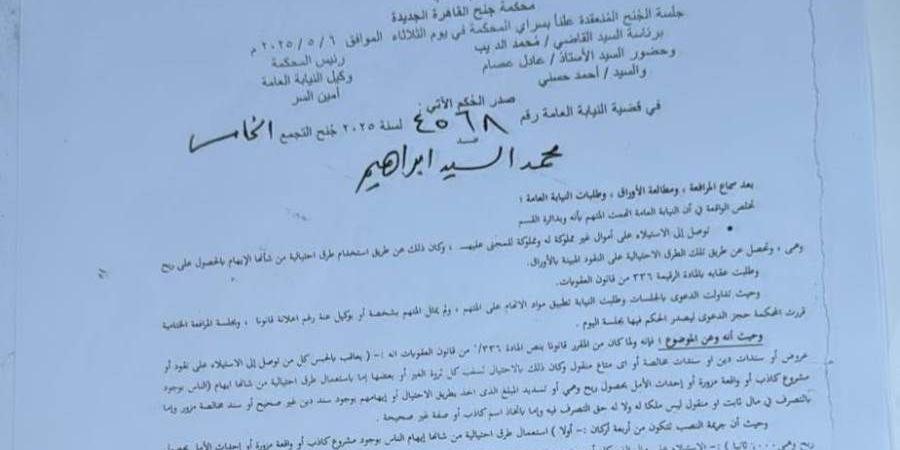 محكمة جنح القاهرة الجديدة
جلسة الجُنح المُنعقدة علناً بسراي المحكمة في يوم الثلاثاء الموافق ٦ / ٥ / ٢٠٢٥ م
برئاسة السيد القاضي / مُحمد الديب رئيس المحكمة
وحضور السيد الأستاذ / عادل عصام وكيل النيابة العامة
والسيد / أحمد حسني أمين السر
صدر الحُكم الآتي
في قضية النيابة العامة رقم ٤٥٦٨ لسنة ٢٠٢٥ جُنح التجمع الخامس
ضد
محمد السيد ابراهيم
بعد سماع المرافعة ، ومطالعة الأوراق ، وطلبات النيابة العامة :
تخلص الواقعة في أن النيابة العامة اتهمت المتهم بأنه وبدائرة القسم
• توصل إلى الاستيلاء على أموال غير مملوكة له ومملوكة للمجنى عليهم ، وكان ذلك عن طريق استخدام طرق احتيالية من شأنها الإيهام بالحصول على ربح
وهمى ، وتحصل عن طريق تلك الطرق الاحتيالية على النقود المبينة بالأوراق.
وطلبت عقابه بالمادة الرقيمة ٣٣٦ من قانون العقوبات.
وحيث تداولت الدعوى بالجلسات وطلبت النيابة تطبيق مواد الاتهام على المتهم ، ولم يمثل المتهم بشخصه أو بوكيل عنه رغم اعلانه قانونا ، وبجلسة المرافعة الختامية
قررت المحكمة حجز الدعوى ليصدر الحكم فيها بجلسة اليوم .
وحيث أنه وعن الموضوع : فإنه ولما كان من المقرر قانونا بنص المادة ٣٣٦/١ من قانون العقوبات انه :- ( يعاقب بالحبس كل من توصل إلى الاستيلاء على نقود أو
عروض أو سندات دين او سندات مخالصة أو اى متاع منقول وكان ذلك بالاحتيال لسلب كل ثروة الغير أو بعضها إما باستعمال طرق احتيالية من شأنها ايهام الناس بوجود
مشروع كاذب أو واقعة مزورة أو إحداث الأمل بحصول ربح وهمي أو تسديد المبلغ الذى اخذ بطريق الاحتيال أو إيهامهم بوجود سند دين غير صحيح أو سند مخالصة مزور وإما
بالتصرف في مال ثابت او منقول ليس ملكا له ولا له حق التصرف فيه وإما باتخاذ اسم كاذب أو صفة غير صحيحة .
وحيث أن جريمة النصب تتكون من أربعة أركان :- أولا ) استعمال طرق احتيالية من شأنها إيهام الناس بوجود مشروع كاذب أو واقعة مزورة أو إحداث الأمل بحصول
ربح وهمى .... ثانيا ) :- الاستيلاء على مال